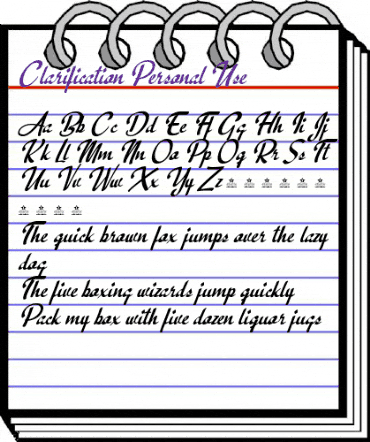 Clarification Personal Use
Aa Bb Cc Dd Ee Ff Gg Hh Ii Jj
Kk Ll Mm Nn Oo Pp Qq Rr Ss Tt
Uu Vv Ww Xx Yy Zz
The quick brown fox jumps over the lazy
dog
The five boxing wizards jump quickly
Pack my box with five dozen liquor jugs